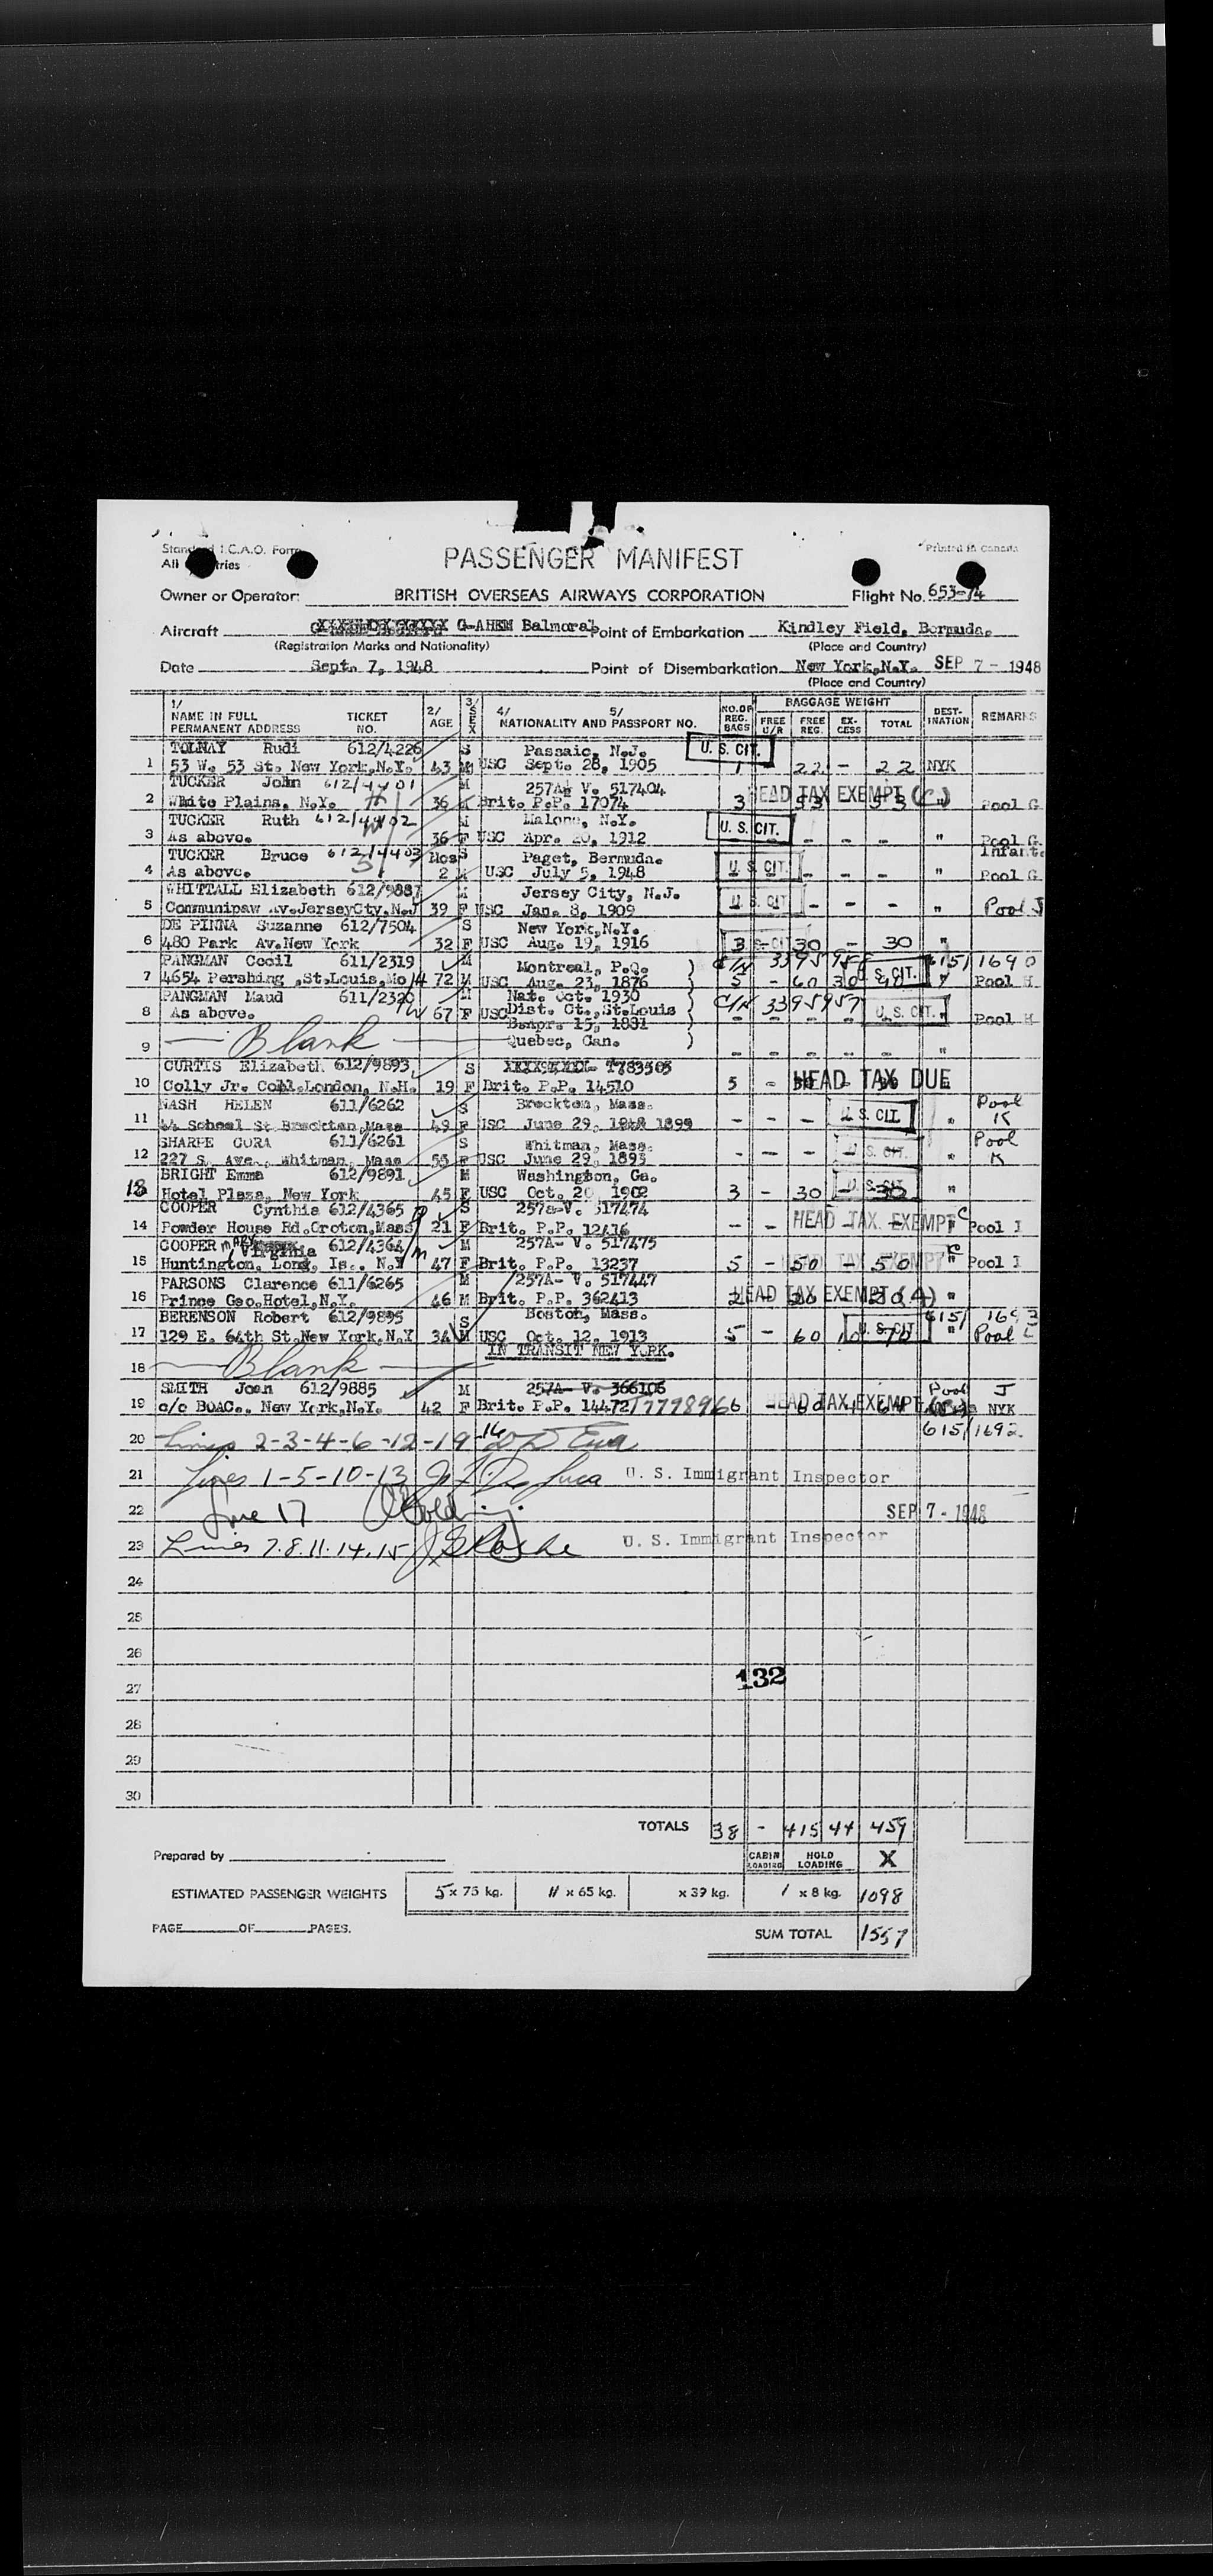 Standard I.C.A.O. Form
All
PASSENGER MANIFEST
Printed in Canada
Owner or Operator: BRITISH OVERSEAS AIRWAYS CORPORATION Flight No. 653-74
Aircraft G-AHEM Balmoral Point of Embarkation Kindley Field, Bermuda.
(Registration Marks and Nationality) (Place and Country)
Date Sept. 7, 1948 Point of Disembarkation New York, N.Y. SEP 7 - 1948
(Place and Country)
1/ NAME IN FULL PERMANENT ADDRESS TICKET NO. 2/ AGE 3/ SEX 4/ 5/ NATIONALITY AND PASSPORT NO. NO. OF REG. BAGS BAGGAGE WEIGHT FREE U/R FREE REG. EX-CESS TOTAL DEST-INATION REMARKS
TOLNAY Rudi 612/4226 S Passaic, N.J. U. S. CIT.
1 53 W. 53 St. New York, N.Y. 43 M USC Sept. 28, 1905 1 - 22 - 22 NYK
TUCKER John 612/4401 M 257A- V. 517404 HEAD TAX EXEMPT (C)
2 White Plains, N.Y. 36 M Brit. P.P. 17074 3 - 53 - 53 " Pool G
TUCKER Ruth 612/4402 M Malone, N.Y. U. S. CIT.
3 As above. 36 F USC Apr. 20, 1912 - - - " Pool G
TUCKER Bruce 612/4403 Mos S Paget, Bermuda. U. S. CIT. Infant.
4 As above. 2 M USC July 5, 1948 - - - - " Pool G
WHITTALL Elizabeth 612/9887 M Jersey City, N.J. U. S. CIT
5 Communipaw Av. Jersey Cty. N.J 39 F USC Jan. 8, 1909 - - - " Pool J
DE PINNA Suzanne 612/7504 S New York, N.Y.
6 480 Park Av. New York 32 F USC Aug. 19, 1916 3 - 30 - 30 "
PANGMAN Cecil 611/2319 M Montreal, P.Q. ) C/N 339595 615/1690
7 4654 Pershing, St. Louis, Mo 72 M USC Aug. 23, 1876 ) 5 - 60 30 90 U. S. CIT. " Pool H
PANGMAN Maud 611/2320 M Nat. Oct. 1930 ) C/N 3395957
8 As above. 67 F USC Dist. Ct., St. Louis ) - - - - U. S. CIT. " Pool H
Bnapr. 15, 1881
9 Blank Quebec, Can. ) - - - - "
CURTIS Elizabeth 612/9893 S T783505
10 Colly Jr. Coll. London, N.H. 19 F Brit. P.P. 14510 5 - HEAD TAX DUE
NASH HELEN 611/6262 S Brockton, Mass. U. S. CIT. Pool
11 44 School St Brockton, Mass 49 F USC June 29, 1899 - - - " K
SHARPE CORA 611/6261 S Whitman, Mass. U. S. CIT. Pool
12 227 S. Ave., Whitman, Mass 55 F USC June 29, 1893 - - - - " K
BRIGHT Emma 612/9891 M Washington, Ga. U. S. CIT
13 Hotel Plaza, New York 45 F USC Oct. 20, 1902 3 - 30 - 30 "
COOPER Cynthia 612/4365 S 257a-V. 517474
14 Powder House Rd. Groton, Mass 21 F Brit. P.P. 12416 - - HEAD TAX EXEMPT C " Pool I
COOPER Mary Virginia 612/4364 M 257A- V. 517475
15 Huntington, Long, Is., N.Y 47 F Brit. P.P. 13237 5 - 50 - 50 HEAD TAX EXEMPT C " Pool I
PARSONS Clarence 611/6265 M 257A- V. 517447
16 Prince Geo. Hotel, N.Y. 46 M Brit. P.P. 362413 2 HEAD TAX EXEMPT (4) "
BERENSON Robert 612/9895 S Boston, Mass. 615/1693
17 129 E. 64th St. New York, N.Y 34 M USC Oct. 12, 1913 5 - 60 10 70 U. S. CIT. " Pool L
IN TRANSIT NEW YORK.
18 Blank
SMITH Joan 612/9885 M 257A- V. 366106 Pool J
19 c/c BOAC., New York, N.Y. 42 F Brit. P.P. 14472 T777896 6 - HEAD TAX EXEMPT NYK
615/1692
20 Lines 2-3-4-6-12-19-16
21 Lines 1-5-10-13 U. S. Immigrant Inspector
22 Line 17 SEP 7 - 1948
23 Lines 7.8.11.14.15 U. S. Immigrant Inspector
24
25
26
132
27
28
29
30
TOTALS 38 - 415 44 459
Prepared by CABIN LOADING HOLD LOADING X
ESTIMATED PASSENGER WEIGHTS 5 x 75 kg. 11 x 65 kg. x 39 kg. 1 x 8 kg. 1098
PAGE OF PAGES. SUM TOTAL 1557